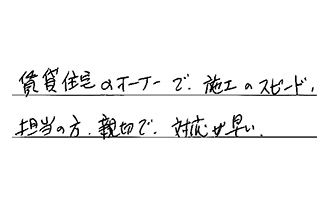 賃貸住宅のオーナーで、施工のスピード、
担当の方、親切で、対応が早い、